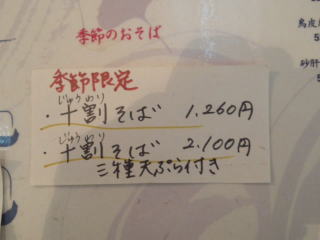 季節のおそば
季節限定
じゅうわり
・十割そば 1.260円
じゅうわり
・十割そば 2.100円
三種天ぷら付き
砂肝